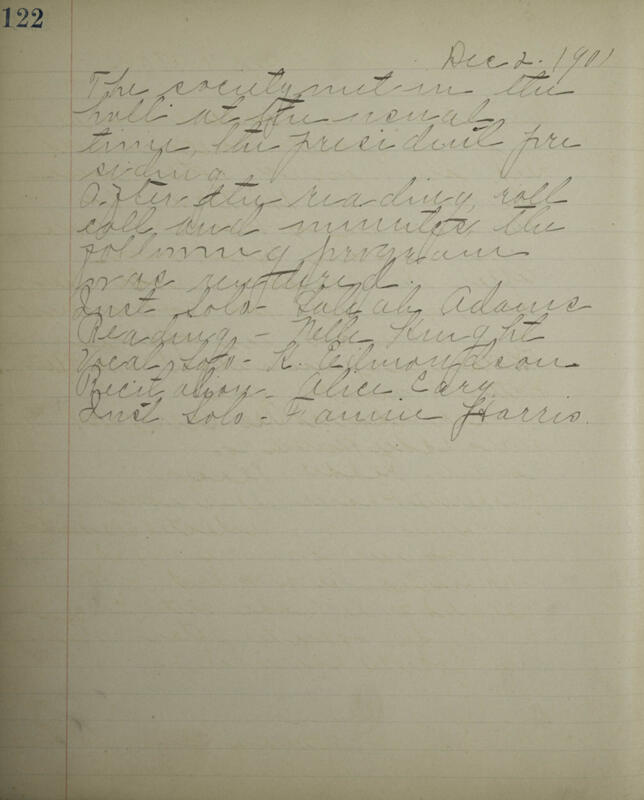 122
Dec 2. 1901
The society met in the
hall at the usual
time, the president pre
siding.
After the reading, roll
call and minutes, the
following program
was rendered.
Inst Solo - Adams
Reading - Nelle Knight
Vocal Solo - K. Edmondson
Recitation - Alice Cary.
Inst Solo - Fannie Harris.